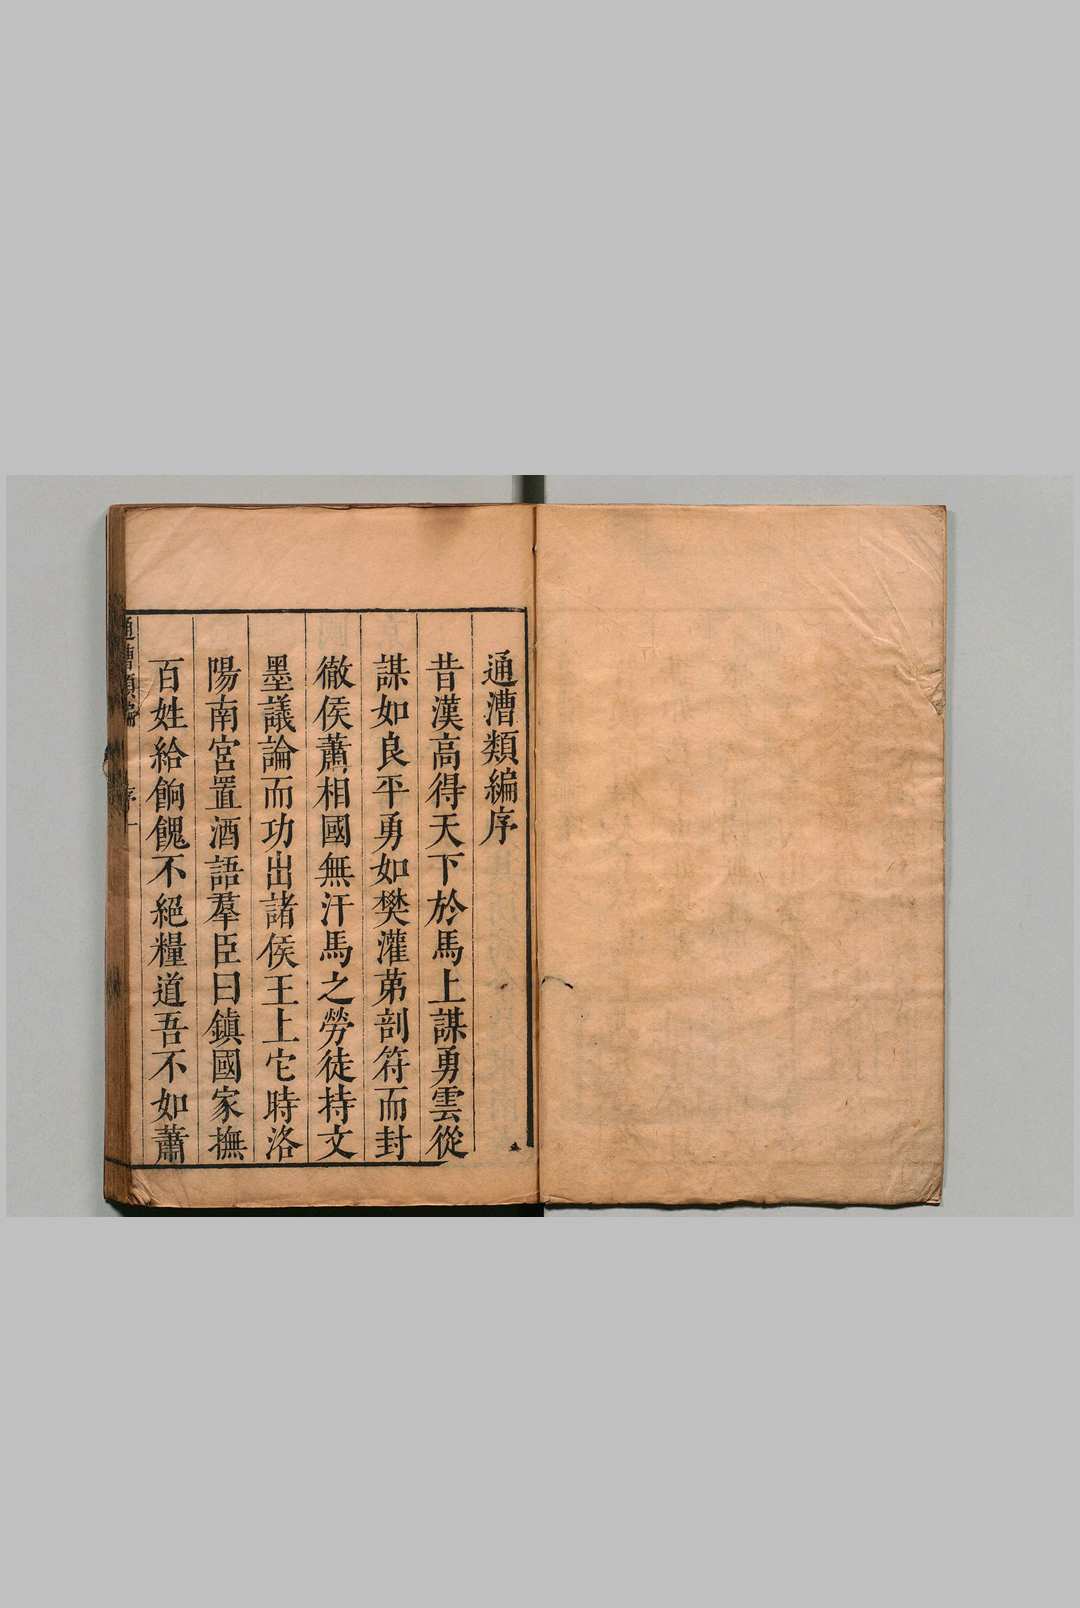 通漕類編序
昔漢高得天下於馬上謀勇雲從
謀如良平勇如樊灌苐剖符而封
徹侯蕭相國無汗馬之勞徒持文
墨議論而功出諸侯王上它時洛
陽南宮置酒語羣臣曰鎮國家撫
百姓給餉餽不絕糧道吾不如蕭
通漕類編
序
一